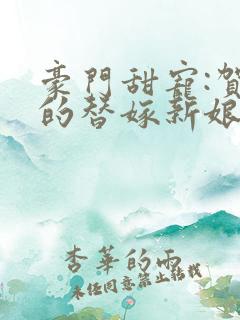 豪門甜寵:賀
的替嫁新娘
杏華的雨
未經同意禁止轉載